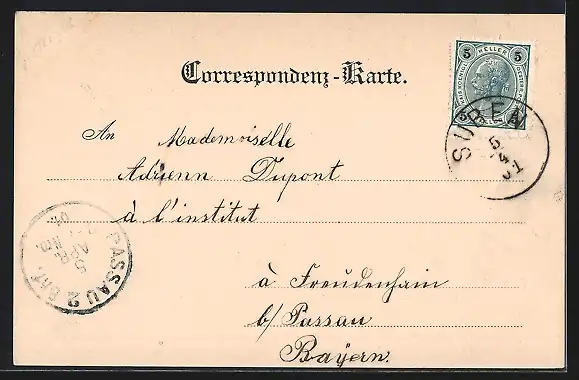 Correspondenz-Karte.
5 HELLER 5
SUBEN
5 4 01
An Mademoiselle
Adrienn Dupont
à l'institut
à Freudenhain
b/ Passau
Bayern.
PASSAU 2 BHF.
5
APR.
01.